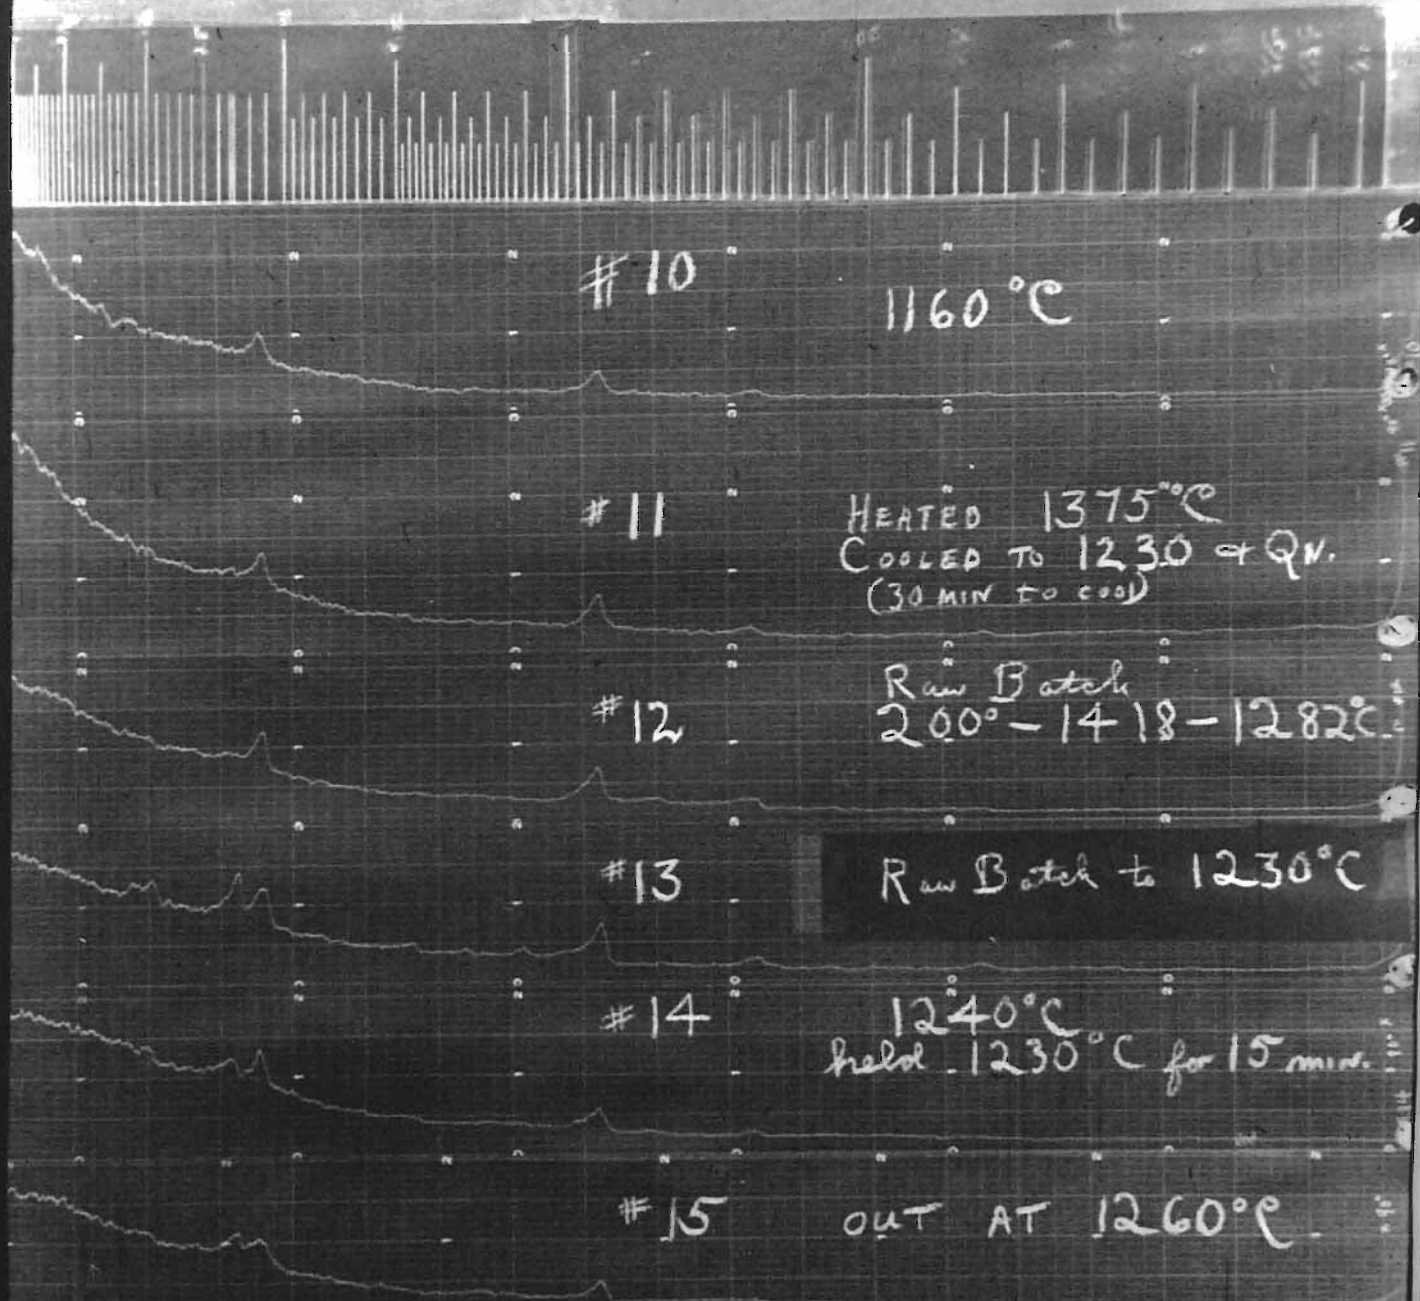 #10
1160°C
#11
HEATED 1375°C
COOLED TO 1230 & QN.
(30 MIN to cool)
Raw Batch
#12
200° - 1418 - 1282°C
#13
Raw Batch to 1230°C
#14
1240°C
held 1230°C for 15 min.
#15
OUT AT 1260°C